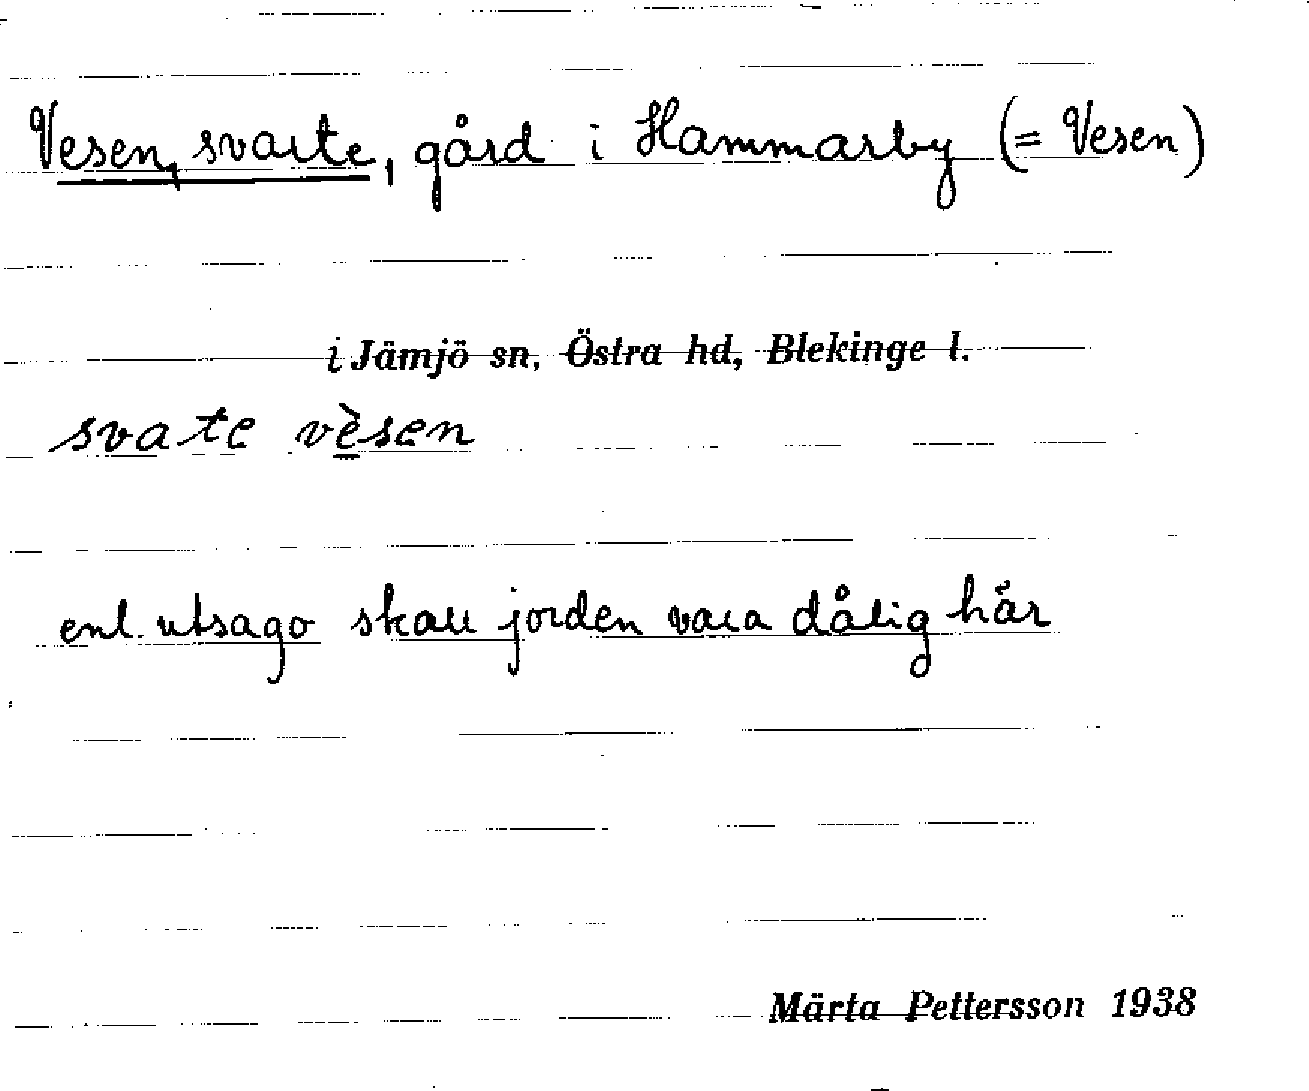 Vesen, svarte, gård i Hammarby (= Vesen)
i Jämjö sn, Östra hd, Blekinge l.
svate vèsen
enl. utsago skall jorden vara dålig här
Märta Pettersson 1938